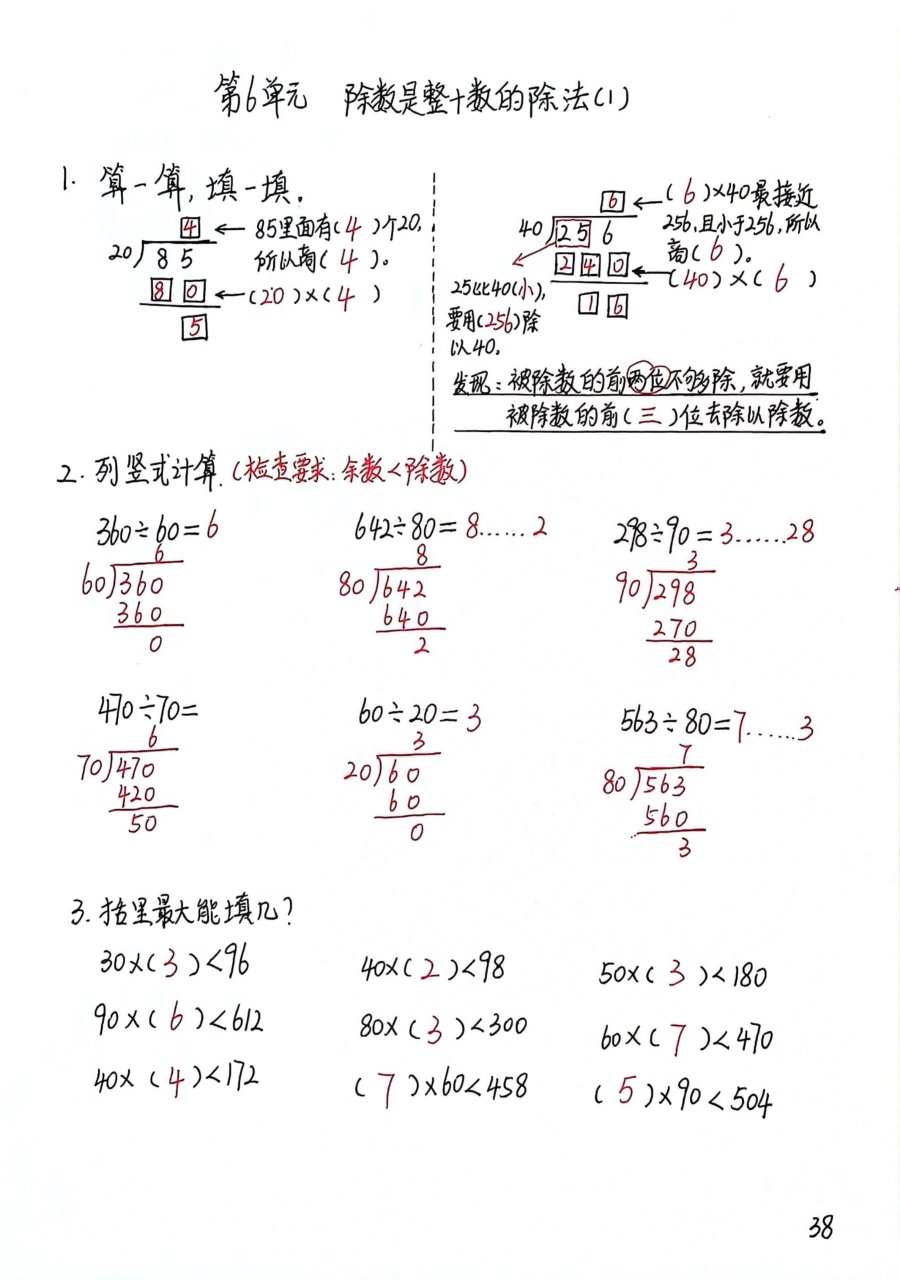 第6单元 除数是整十数的除法(1)
1. 算一算,填一填。
4 ← 85里面有(4)个20,
20)85 所以商(4)。
80 ← (20)×(4)
5
6 ← (6)×40最接近
40)256 256,且小于256,所以
商(6)。
240 ← (40)×(6)
16
25比40(小),
要用(256)除
以40。
发现:被除数的前两位不够除,就要用
被除数的前(三)位去除以除数。
2. 列竖式计算.(检查要求:余数<除数)
360÷60=6 642÷80=8……2 298÷90=3……28
6 8 3
60)360 80)642 90)298
360 640 270
0 2 28
470÷70= 60÷20=3 563÷80=7……3
6 3 7
70)470 20)60 80)563
420 60 560
50 0 3
3. 括里最大能填几?
30×(3)<96 40×(2)<98 50×(3)<180
90×(6)<612 80×(3)<300 60×(7)<470
40×(4)<172 (7)×60<458 (5)×90<504
38